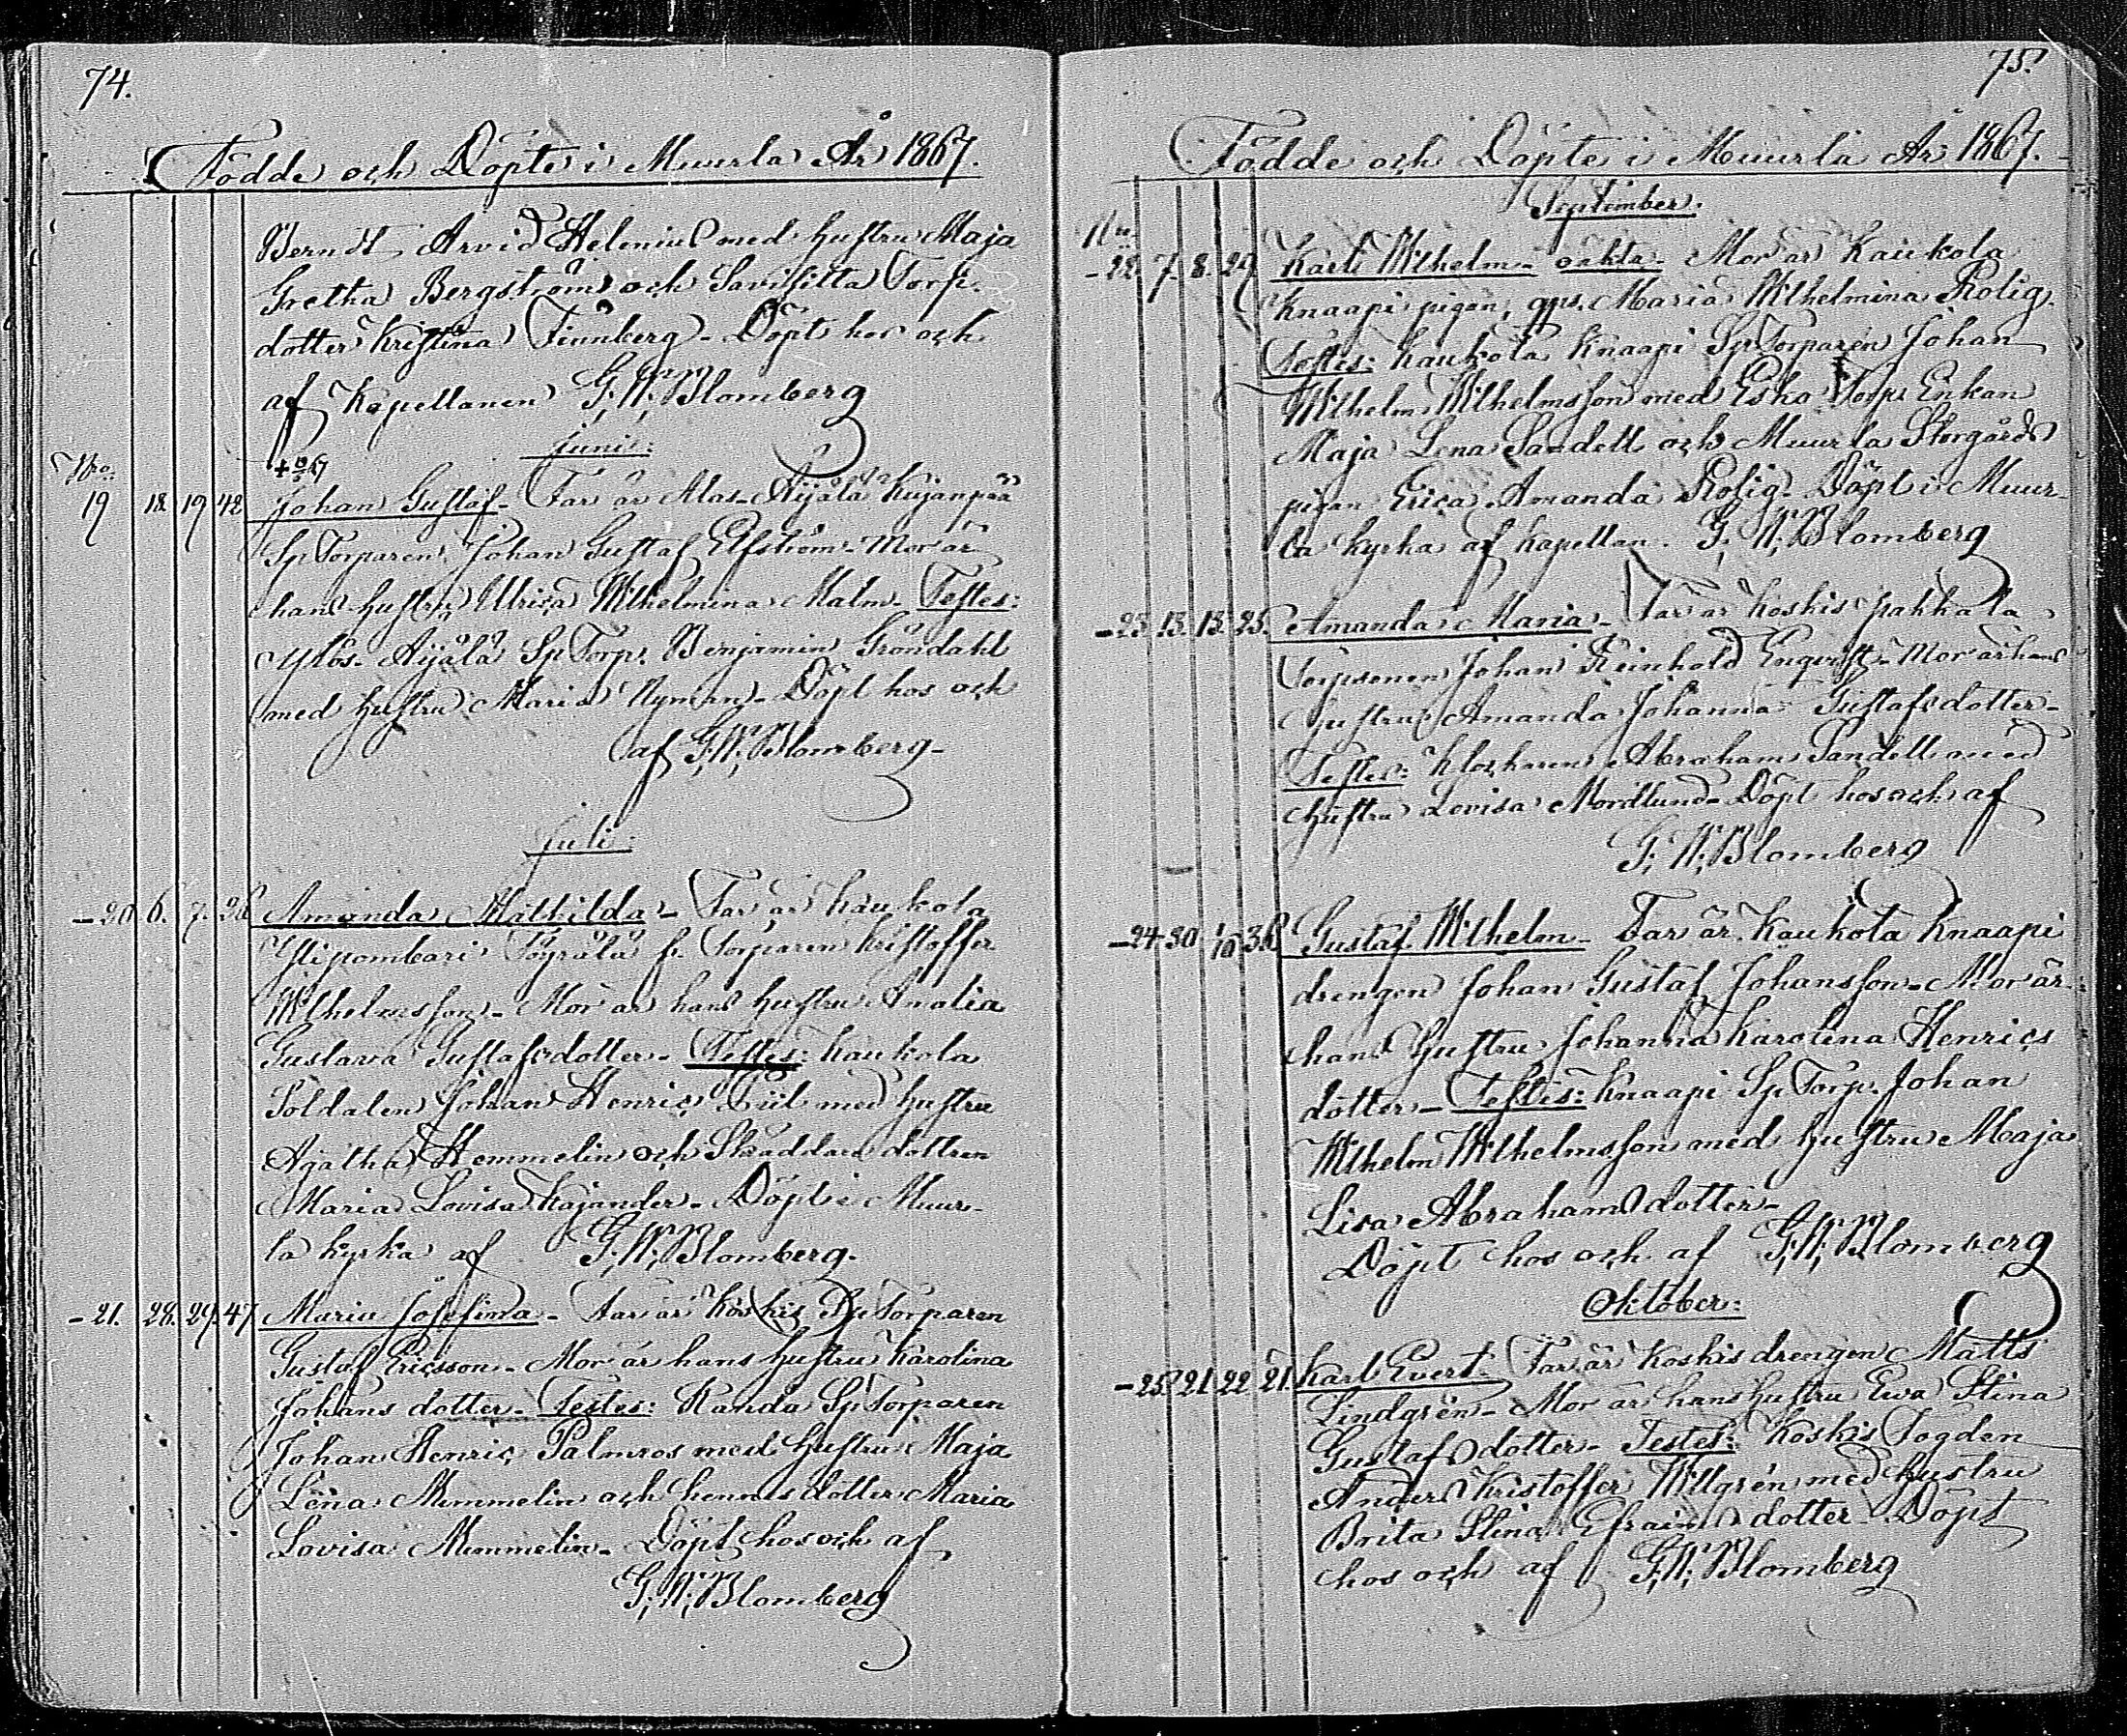 74.
Födde och Döpte i Muurla År 1867.
Berndt Arvid Helenius med hustru Maja
Gretha Bergström och Torp.
dotter Kristina Finnberg - Döpt hos och
af Kapellanen G. W. Blomberg
Juni:
Nro
19 18. 19 42 Johan Gustaf - Far är Alas-Äijälä Kujanpää
Sp Torparen Johan Gustaf Elfström - Mor är
hans hustru Ulrica Wilhelmina Malm - Testes:
Ylös-Äijälä Sp Torp. Benjamin Gröndahl
med hustru Maria Nyman - Döpt hos och
af G. W. Blomberg -
Juli
- 20 6. 7. 26 Amanda Mathilda - Far är Kaukola
Ylipombari f. Torparen Kristoffer
Wilhelmsson - Mor är hans hustru Amalia
Gustava Gustafsdotter - Testes: Kaukola
Soldaten Johan Henric med hustru
Agatha Hemmelin och Skräddare dottren
Maria Lovisa Kajander - Döpt i Muur-
la kyrka af G. W. Blomberg.
- 21. 28. 29. 47 Maria Josefina - Far är Koskis Sp Torparen
Gustaf Ericsson - Mor är hans hustru Karolina
Johans dotter - Testes: Randa Sp Torparen
Johan Henric Palmros med hustru Maja
Lena Mimmelin och hennes dotter Maria
Lovisa Mimmelin - Döpt hos och af
G. W. Blomberg
75.
Födde och Döpte i Muurla År 1867.
September.
Nro
- 22. 7. 8. 29 Karl Wilhelm - oäkta - Mor är Kaukola
Knaapi pigan, Maria Wilhelmina Rolig.
Testes: Kaukola Knaapi Sp Torparen Johan
Wilhelm Wilhelmsson med Esko Torp. Enkan
Maja Lena Sandell och Muurla Storgårds
pigan Erica Amanda Rolig - Döpt i Muur-
la kyrka af Kapellan. G. W. Blomberg
- 23. 13. 15. 25. Amanda Maria - Far är Koskis Pakkala
Torpsonen Johan Reinhold Enqvist - Mor är hans
hustru Amanda Johanna Gustafsdotter -
Testes: Klockaren Abraham Sandell med
hustru Lovisa Nordlund - Döpt hos och af
G. W. Blomberg
- 24. 30 1/10 38 Gustaf Wilhelm - Far är Kaukola Knaapi
drengen Johan Gustaf Johansson - Mor är
hans hustru Johanna Karolina Henrics
dotter - Testes: Knaapi Sp Torp. Johan
Wilhelm Wilhelmsson med hustru Maja
Lisa Abrahamsdotter -
Döpt hos och af G. W. Blomberg
Oktober:
- 25. 21 22 21. Karl Evert - Far är Koskis drengen Matts
Lindgrén - Mor är hans hustru Ewa Stina
Gustafsdotter - Testes: Koskis Fogden
Anders Kristoffer Willgrén med hustru
Brita Stina Efraims dotter - Döpt
hos och af G. W. Blomberg